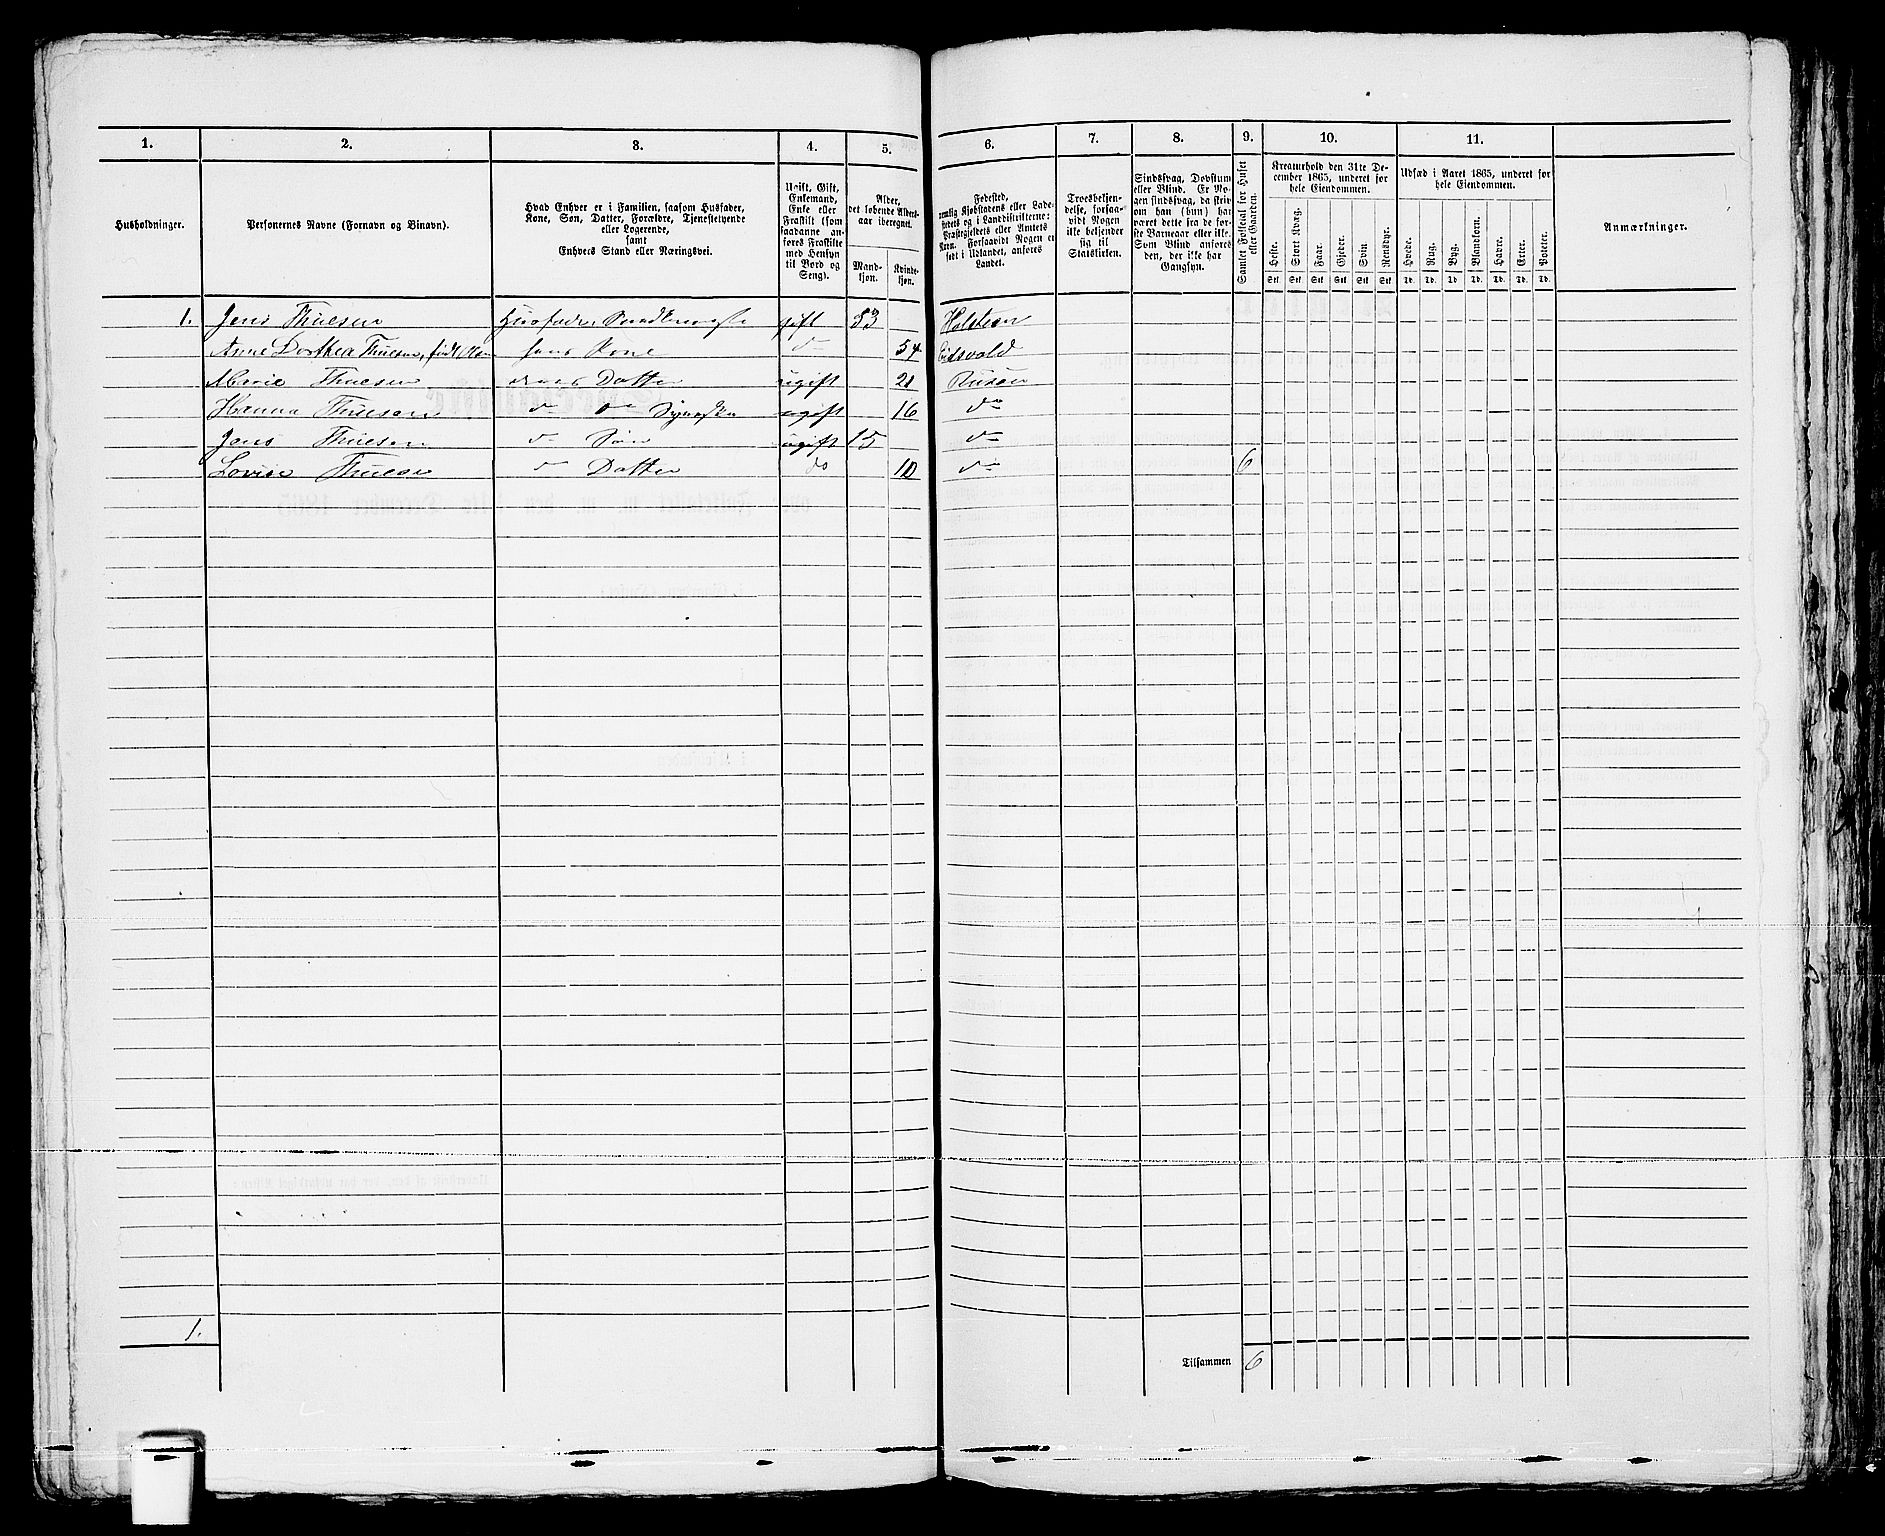 1. 2. 3. 4. 5. 6. 7. 8. 9. 10. 11.
Husholdninger.
Personernes Navne (Fornavn og Binavn).
Hvad Enhver er i Familien, saasom Husfader,
Kone, Søn, Datter, Forældre, Tjenestetyende
eller Logerende,
samt
Enhvers Stand eller Næringsvei.
Ugift, Gift,
Enkemand,
Enke eller
Fraskilt (som
saadanne an-
føres Fraskilte
med Hensyn
til Bord og
Seng).
Alder,
det løbende Alders-
aar iberegnet.
Mand-
kjøn.
Kvinde-
kjøn.
Fødested,
nemlig Kjøbstadens eller Lade-
stedets og i Landdistrikterne:
Præstegjeldets eller Amtets
Navn. Forsaavidt Nogen er
født i Udlandet, anføres
Landet.
Troesbekjen-
delse, forsaa-
vidt Nogen
ikke bekjender
sig til
Statskirken.
Sindssvag, Døvstum
eller Blind. Er No-
gen sindssvag, da skri-
ves om han (hun) har
været dette fra de før-
ste Barneaar eller ikke.
Som Blind anføres
den, der ikke har
Gangsyn.
Samlet Folketal for Huset
eller Gaarden.
Kreaturhold den 31te De-
cember 1865, underet for
hele Eiendommen.
Heste. Stort Kvæg. Faar. Gjeder. Svin. Rensdyr.
Stk. Stk. Stk. Stk. Stk. Stk.
Udsæd i Aaret 1865, underet for
hele Eiendommen.
Hvede. Rug. Byg. Blandkorn. Havre. Erter. Poteter.
Td. Td. Td. Td. Td. Td. Td.
Anmærkninger.
1. Jens Thuesen Husfader, gift 53 Holsteen
Anne Dorthea Thuesen, født hans Kone d 54 Eidsvold
Marie Thuesen deres Datter ugift 21 Risøer
Hanna Thuesen do do ugift 16 do
Jens Thuesen do Søn ugift 15 do
Lovise Thuesen do Datter do 10 do 6
1.
Tilsammen 6